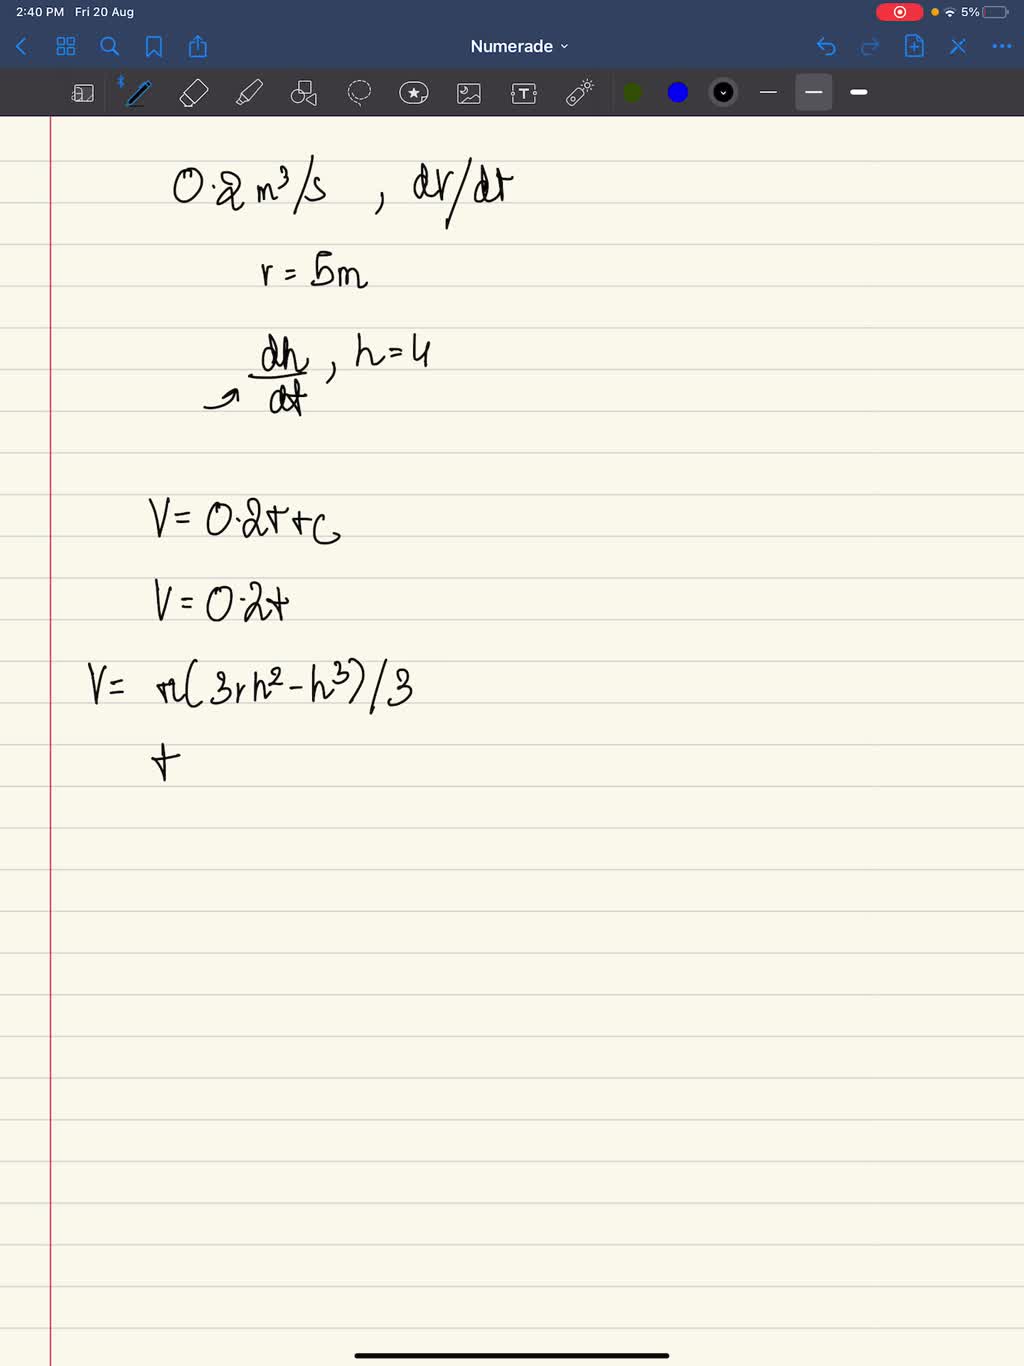 2:40 PM Fri 20 Aug 5%
Numerade
T
0.2 m³/s , dV/dt
r = 5m
dh/dt , h = 4
V = 0.2t + C
V = 0.2t
V = π(3rh² - h³)/3
t